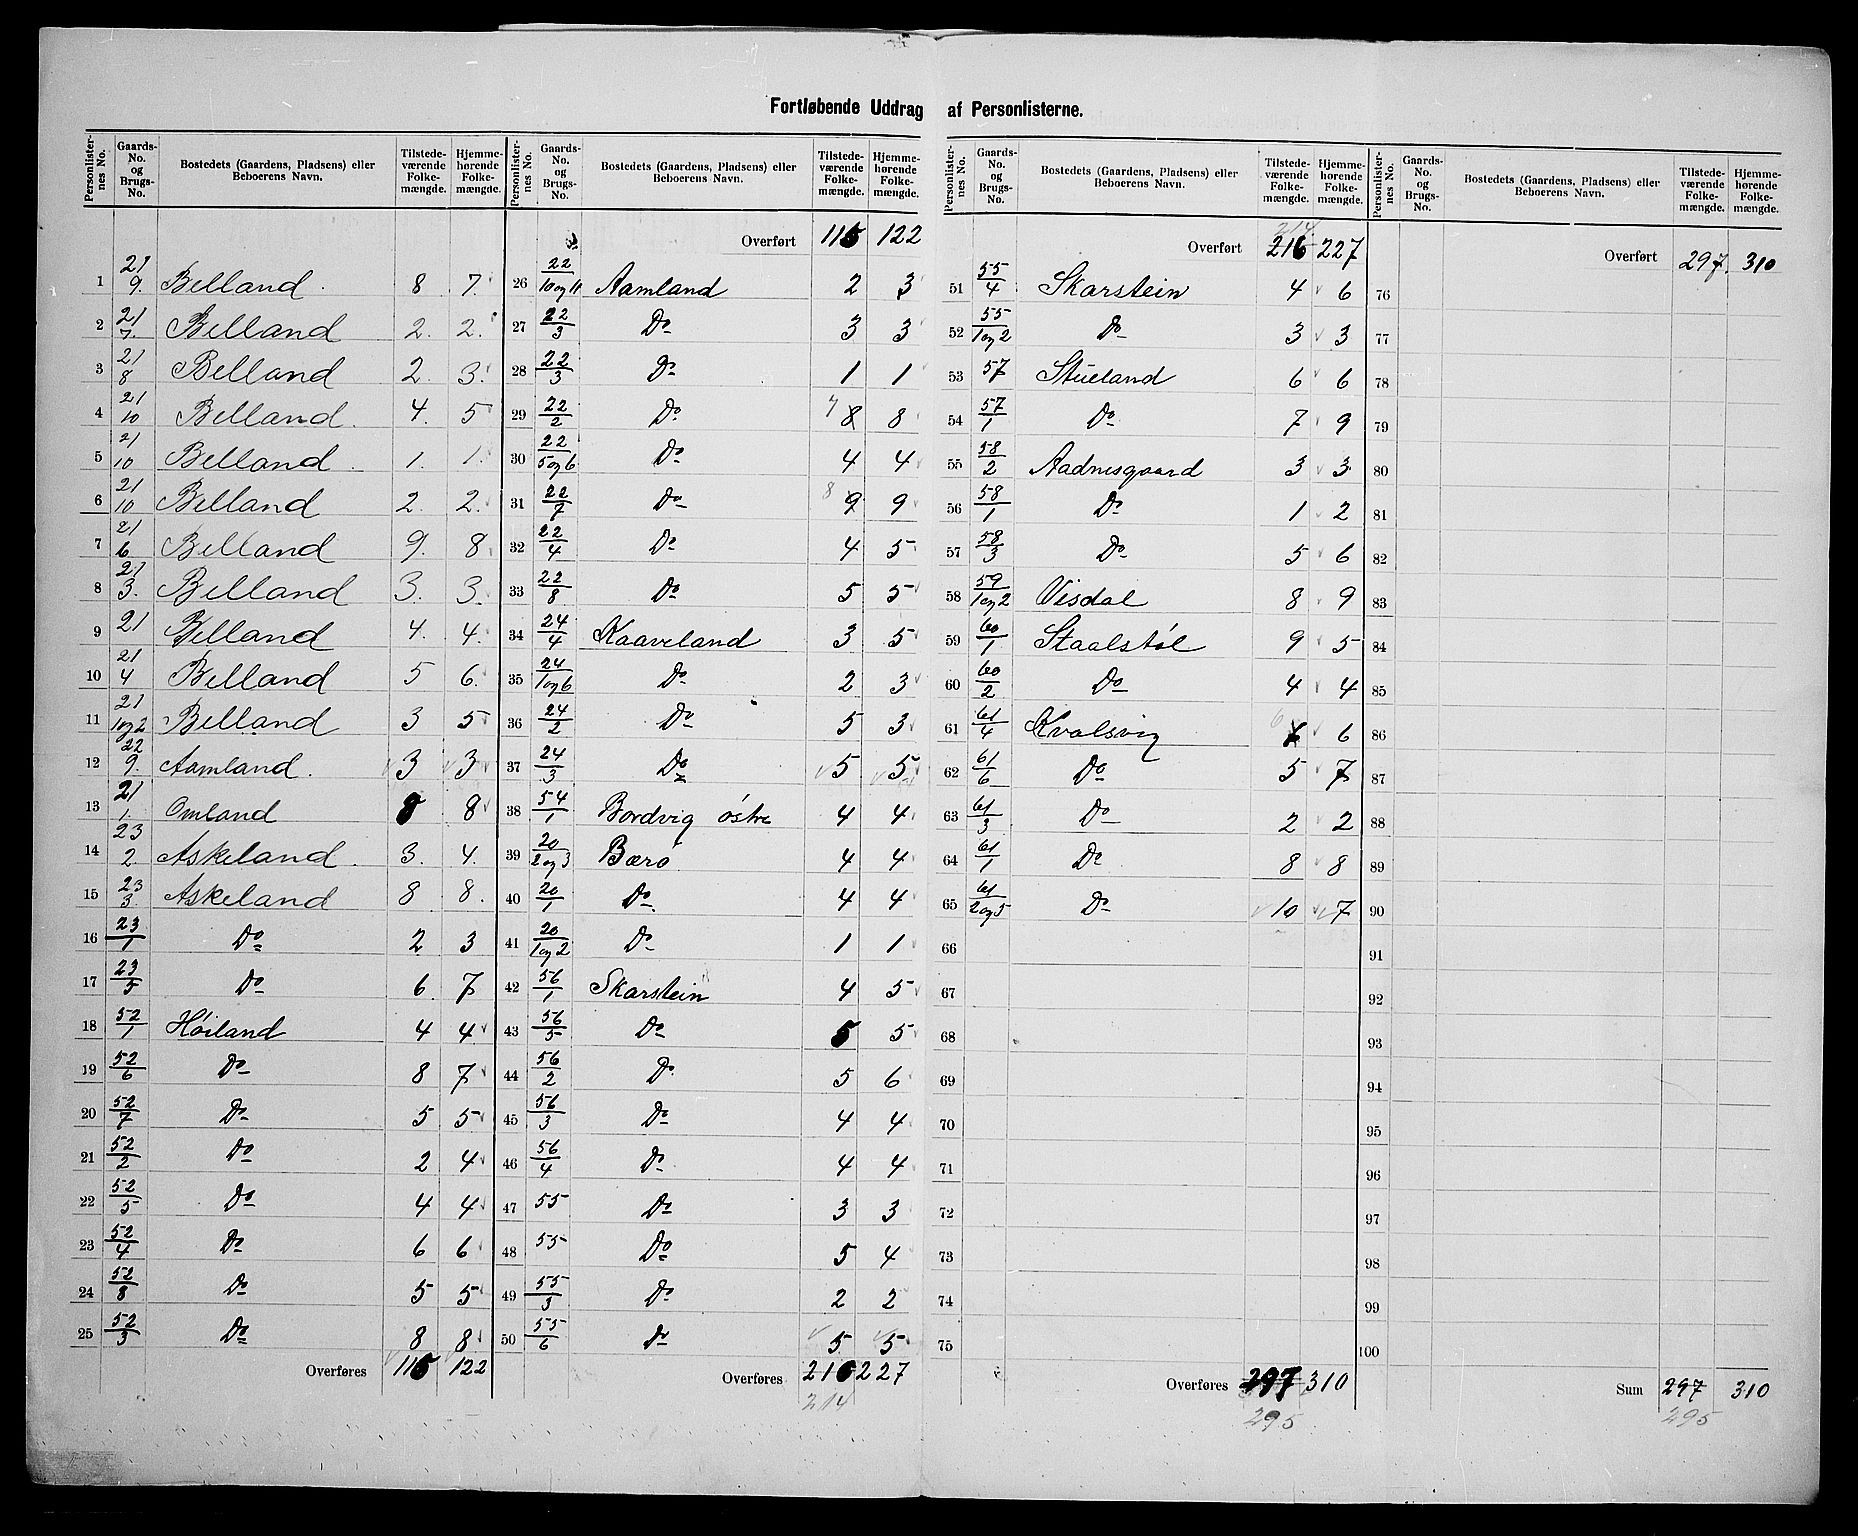 Fortløbende Uddrag af Personlisterne.
Personlisternes No. | Gaards-No. og Brugs-No. | Bostedets (Gaardens, Pladsens) eller Beboerens Navn. | Tilstedeværende Folkemængde. | Hjemmehørende Folkemængde.
1 21/9 Belland. 8 7
2 21/7 Belland 2. 2.
3 21/8 Belland 2. 3.
4 21/10 Belland. 4. 5
5 21/10 Belland. 1. 1.
6 21/10 Belland 2. 2.
7 21/6 Belland 9. 8
8 21/3. Belland 3. 3.
9 21 Belland 4. 4.
10 21/4 Belland 5 6.
11 21/1og2 Belland 3 5
12 22/9. Aamland. 3 3
13 21/1. Omland 8 8
14 23/2. Askeland. 3. 4.
15 23/3. Askeland 8 8.
16 23/1 Do 2 3
17 23/5 Do 6 7
18 52/1 Høiland 4 4
19 52/6 Do 8 7
20 52/7 Do 5 5
21 52/2 Do 2 4
22 52/5 Do 4 4
23 52/4 Do 6 6
24 52/8 Do 5 5
25 52/3 Do 8 8
Overføres 115 122
Personlisternes No. | Gaards-No. og Brugs-No. | Bostedets (Gaardens, Pladsens) eller Beboerens Navn. | Tilstedeværende Folkemængde. | Hjemmehørende Folkemængde.
Overført 115 122
26 22/10og11 Aamland 2 3
27 22/3 Do 3 3
28 22/3 Do 1 1
29 22/2 Do 7 8 8
30 22/5og6 Do 4 4
31 22/7 Do 8 9 9
32 22/4 Do 4 5
33 22/8 Do 5 5
34 24/4 Kaaveland 3 5
35 24/1og6 Do 2 3
36 24/2 Do 5 3
37 24/3 Do 5 5
38 54/1 Bordvig østre 4 4
39 20/2og3 Bærø 4 4
40 20/1 Do 4 4
41 20/1og2 Do 1 1
42 56/1 Skarstein 4 5
43 56/5 Do 5 5
44 56/2 Do 5 6
45 56/3 Do 4 4
46 56/4 Do 4 4
47 55 Do 3 3
48 55 Do 5 4
49 55/3 Do 2 2
50 55/6 Do 5 5
Overføres 216 227
214
Personlisternes No. | Gaards-No. og Brugs-No. | Bostedets (Gaardens, Pladsens) eller Beboerens Navn. | Tilstedeværende Folkemængde. | Hjemmehørende Folkemængde.
214
Overført 216 227
51 55/4 Skarstein 4 6
52 55/1og2 Do 3 3
53 57 Stueland 6 6
54 57/1 Do 7 9
55 58/2 Aadnesgaard 3 3
56 58/1 Do 1 2
57 58/3 Do 5 6
58 59/1og2 Visdal 8 9
59 60/1 Staalstøl 9 5
60 60/2 Do 4 4
61 61/4 Kvalsvig 6 6
62 61/6 Do 5 7
63 61/3 Do 2 2
64 61/1 Do 8 8
65 61/2og5 Do 10 7
66
67
68
69
70
71
72
73
74
75
Overføres 297 310
295
Personlisternes No. | Gaards-No. og Brugs-No. | Bostedets (Gaardens, Pladsens) eller Beboerens Navn. | Tilstedeværende Folkemængde. | Hjemmehørende Folkemængde.
Overført 297 310
76
77
78
79
80
81
82
83
84
85
86
87
88
89
90
91
92
93
94
95
96
97
98
99
100
Sum 297 310
295